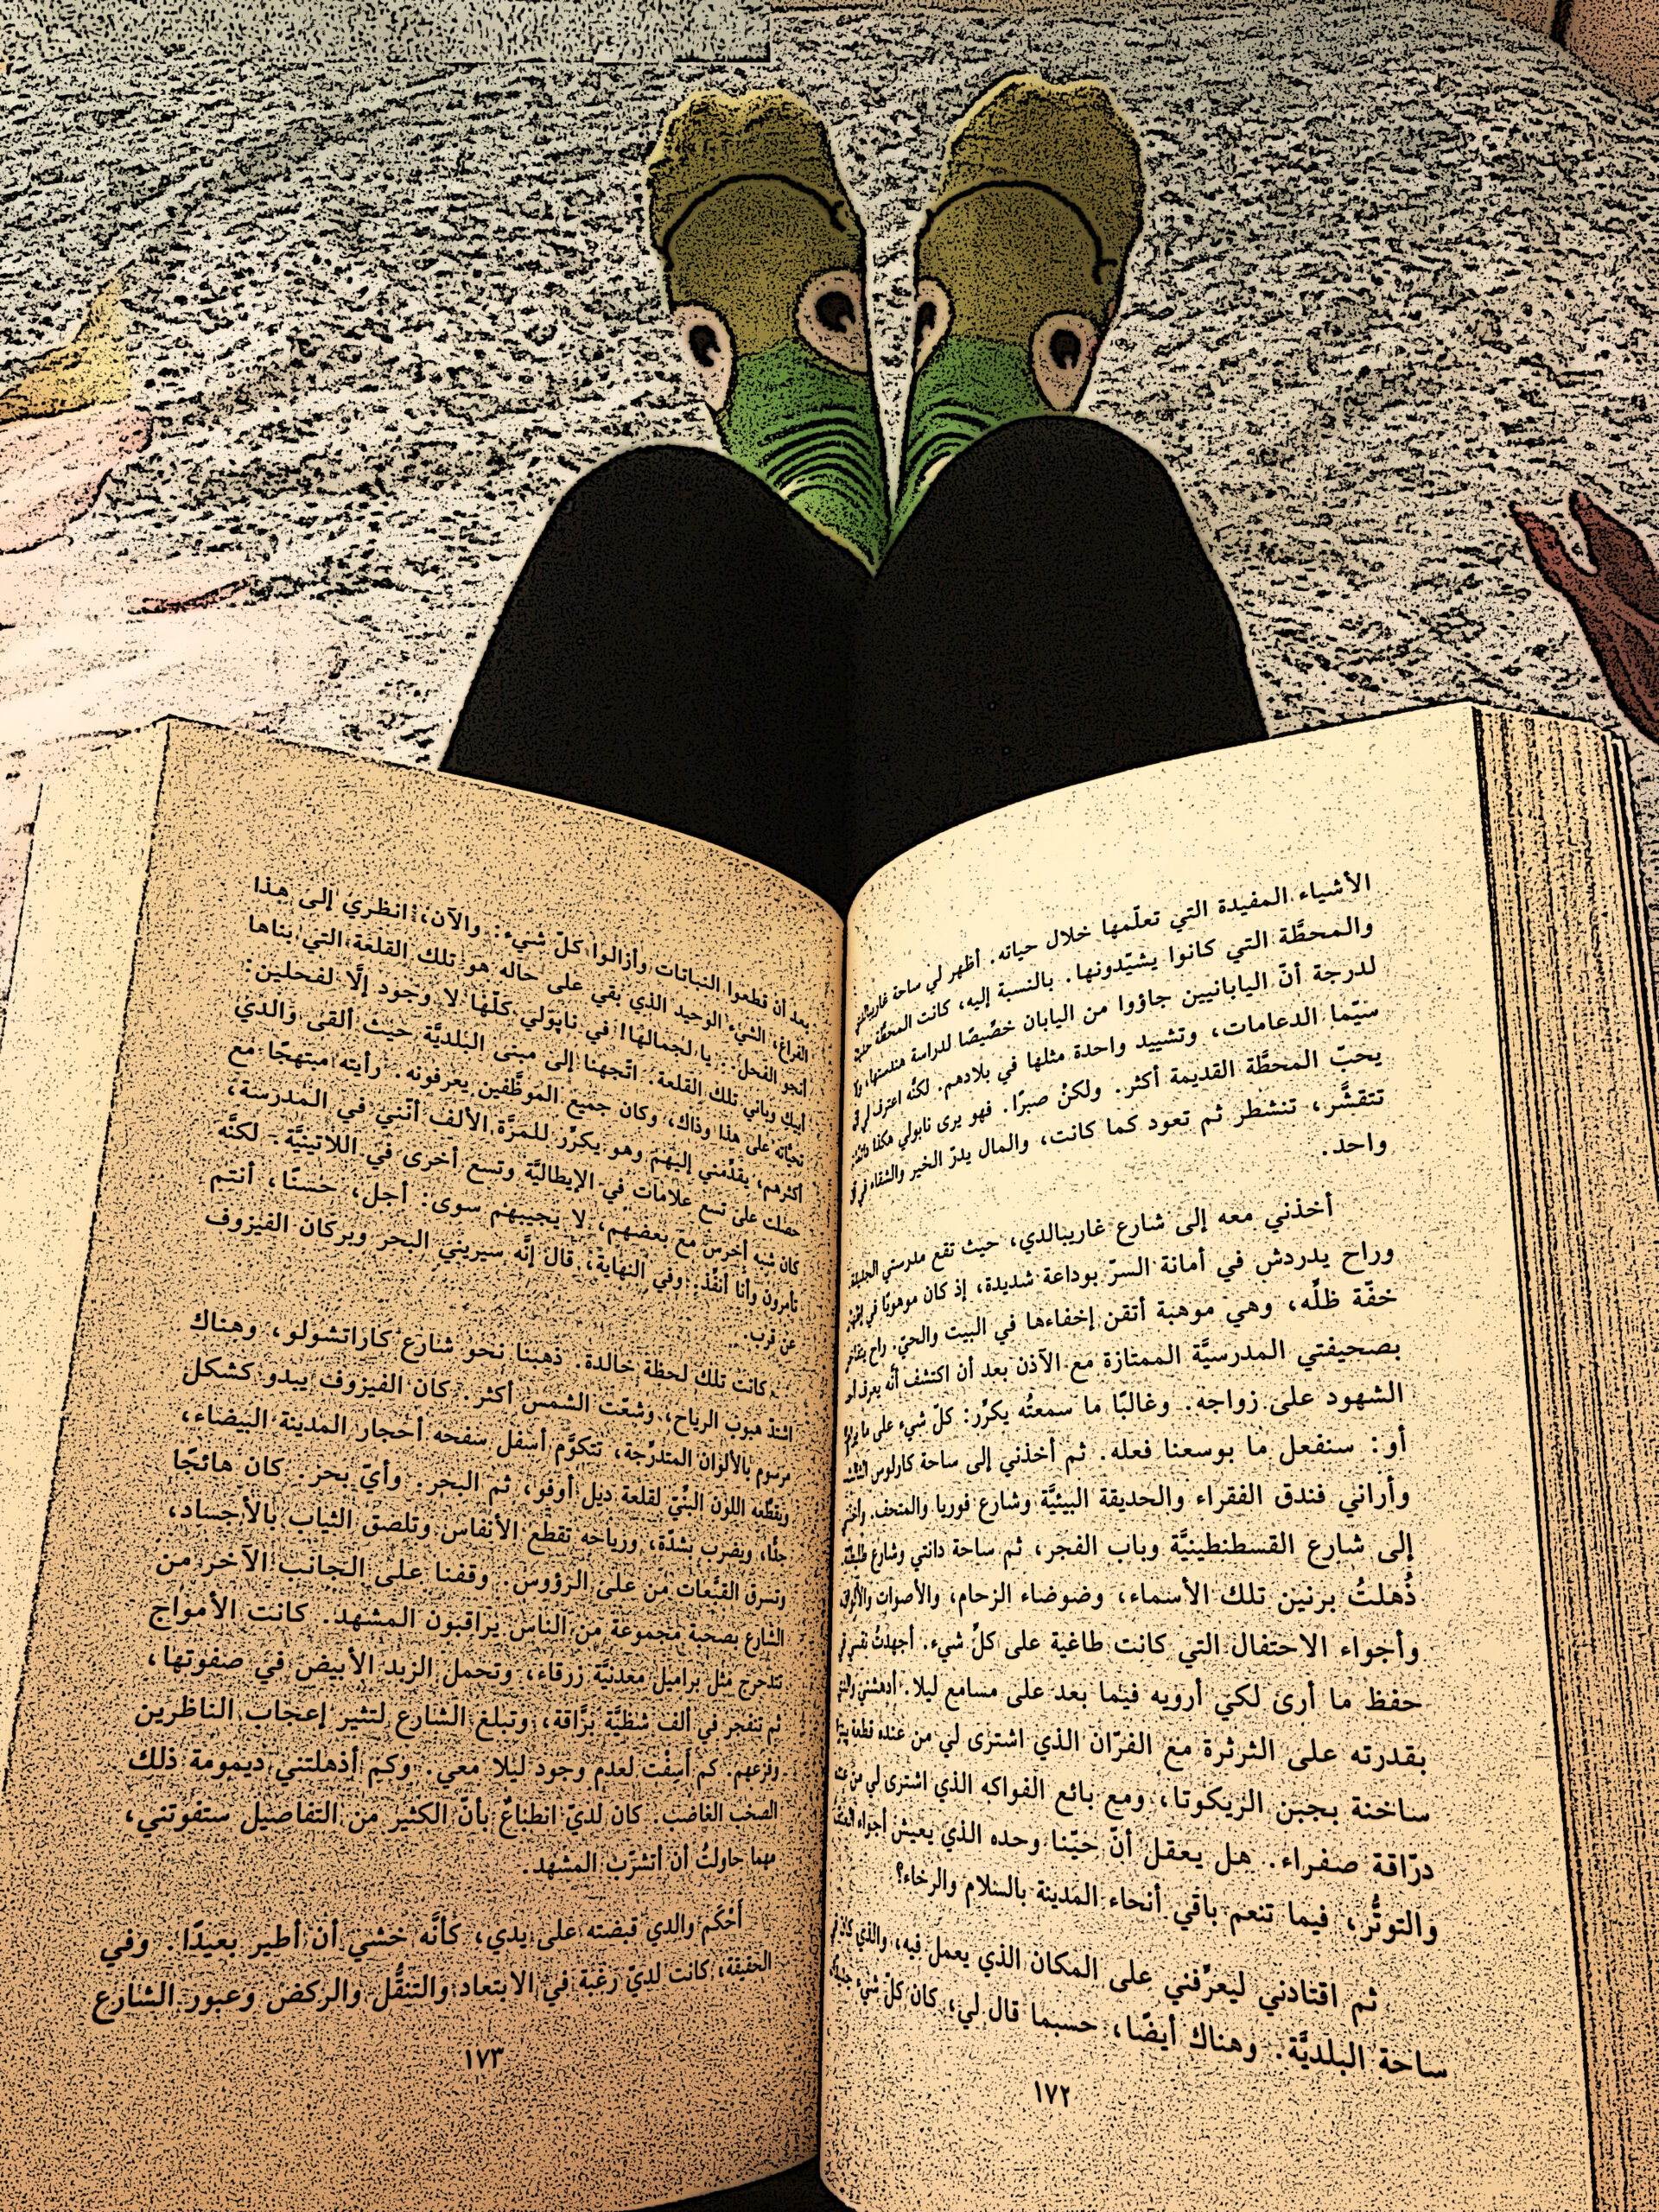 الأشياء المفيدة التي تعلّمها خلال حياته. أظهر لي ساحة غاريبالدي
والمحطَّة التي كانوا يشيّدونها. بالنسبة إليه، كانت المحطَّة
لدرجة أنّ اليابانيين جاؤوا من اليابان خصِّيصًا لدراسة هندستها،
سيّما الدعامات، وتشييد واحدة مثلها في بلادهم. لكنَّه اعترف لي
يحبّ المحطَّة القديمة أكثر. ولكنْ صبرًا. فهو يرى نابولي هكذا
تتقشَّر، تنشطر ثم تعود كما كانت، والمال يدرّ الخير والشقاء في
واحد.
أخذني معه إلى شارع غاريبالدي، حيث تقع مدرستي
وراح يدردش في أمانة السرّ بوداعة شديدة، إذ كان موهوبًا في
خفّة ظلِّه، وهي موهبة أتقن إخفاءها في البيت والحيّ. راح
بصحيفتي المدرسيَّة الممتازة مع الآذن بعد أن اكتشف أنَّه يعرف أحد
الشهود على زواجه. وغالبًا ما سمعتُه يكرِّر: كلّ شيء على ما
أو: سنفعل ما بوسعنا فعله. ثم أخذني إلى ساحة كارلوس الثالث
وأراني فندق الفقراء والحديقة البيئيَّة وشارع فوريا والمتحف.
إلى شارع القسطنطينيَّة وباب الفجر، ثم ساحة دانتي وشارع
ذُهلتُ برنين تلك الأسماء، وضوضاء الزحام، والأصوات والألوان،
وأجواء الاحتفال التي كانت طاغية على كلِّ شيء. أجهدتُ نفسي في
حفظ ما أرى لكي أرويه فيما بعد على مسامع ليلا. أدهشني والدي
بقدرته على الثرثرة مع الفرّان الذي اشترى لي من عنده قطعة بيتزا
ساخنة بجبن الريكوتا، ومع بائع الفواكه الذي اشترى لي من عنده
درّاقة صفراء. هل يعقل أنّ حيّنا وحده الذي يعيش أجواء العنف
والتوتُّر، فيما تنعم باقي أنحاء المدينة بالسلام والرخاء؟
ثم اقتادني ليعرِّفني على المكان الذي يعمل فيه، والذي كان في
ساحة البلديَّة. وهناك أيضًا، حسبما قال لي، كان كلّ شيء
١٧٢
بعد أن قطعوا النباتات وأزالوا كلّ شيء: والآن، انظري إلى هذا
الفراغ، الشيء الوحيد الذي بقي على حاله هو تلك القلعة التي بناها
أنجو الفحل... يا لجمالها! في نابولي كلّها لا وجود إلَّا لفحلين:
أبيكِ وباني تلك القلعة. اتّجهنا إلى مبنى البلديَّة حيث ألقى والدي
تحيَّاته على هذا وذاك، وكان جميع الموظَّفين يعرفونه. رأيته مبتهجًا مع
أكثرهم، يقدِّمني إليهم وهو يكرِّر للمرَّة الألف أنّني في المدرسة،
حصلت على تسع علامات في الإيطاليَّة وتسع أخرى في اللاتينيَّة. لكنَّه
كان شبه أخرس مع بعضهم، لا يجيبهم سوى: أجل، حسنًا، أنتم
تأمرون وأنا أنفِّذ. وفي النهاية، قال إنَّه سيريني البحر وبركان الفيزوف
عن قرب.
كانت تلك لحظة خالدة. ذهبنا نحو شارع كاراتشولو، وهناك
اشتدّ هبوب الرياح، وشعّت الشمس أكثر. كان الفيزوف يبدو كشكل
مرسوم بالألوان المتدرِّجة، تتكوَّم أسفل سفحه أحجار المدينة البيضاء،
ويقطِّعه اللون البنّيّ لقلعة ديل أوفو، ثم البحر. وأيّ بحر. كان هائجًا
جدًّا، ويضرب بشدّة، ورياحه تقطع الأنفاس وتلصق الثياب بالأجساد،
وتسرق القبَّعات من على الرؤوس. وقفنا على الجانب الآخر من
الشارع بصحبة مجموعة من الناس يراقبون المشهد. كانت الأمواج
تتدحرج مثل براميل معدنيَّة زرقاء، وتحمل الزبد الأبيض في صفوتها،
ثم تنفجر في ألف شظيَّة برَّاقة، وتبلغ الشارع لتثير إعجاب الناظرين
وفزعهم. كم أسفتُ لعدم وجود ليلا معي. وكم أذهلتني ديمومة ذلك
الصخب الغاضب. كان لديّ انطباعٌ بأنّ الكثير من التفاصيل ستفوتني،
مهما حاولتُ أن أتشرّب المشهد.
أحْكَم والدي قبضته على يدي، كأنَّه خشي أن أطير بعيدًا. وفي
الحقيقة، كانت لديّ رغبة في الابتعاد والتنقُّل والركض وعبور الشارع
١٧٣